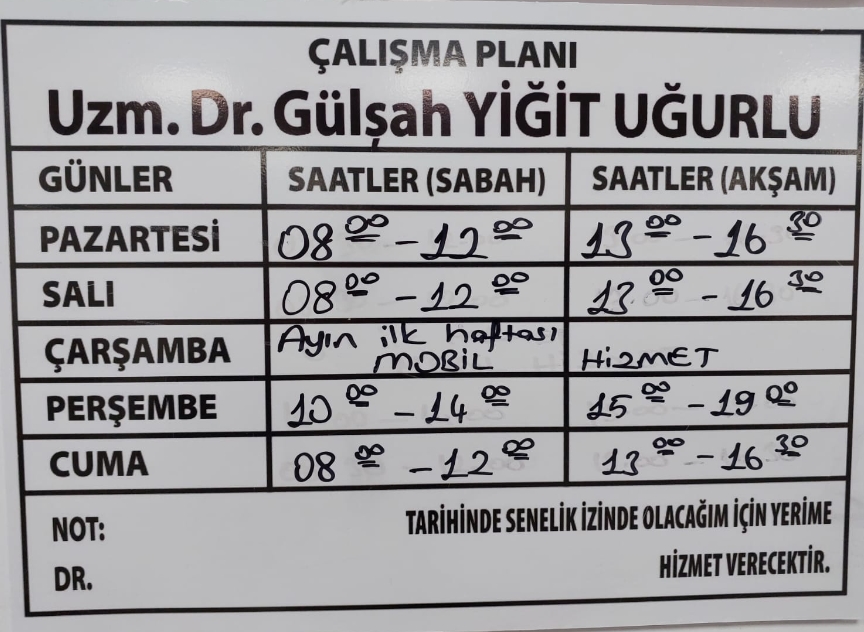 ÇALIŞMA PLANI
Uzm. Dr. Gülşah YİĞİT UĞURLU
GÜNLER SAATLER (SABAH) SAATLER (AKŞAM)
PAZARTESİ 08 00 - 12 00 13 00 - 16 30
SALI 08 00 - 12 00 13 00 - 16 30
ÇARŞAMBA Ayın ilk haftası
MOBİL HİZMET
PERŞEMBE 10 00 - 14 00 15 00 - 19 00
CUMA 08 00 - 12 00 13 00 - 16 30
NOT: TARİHİNDE SENELİK İZİNDE OLACAĞIM İÇİN YERİME
DR. HİZMET VERECEKTİR.